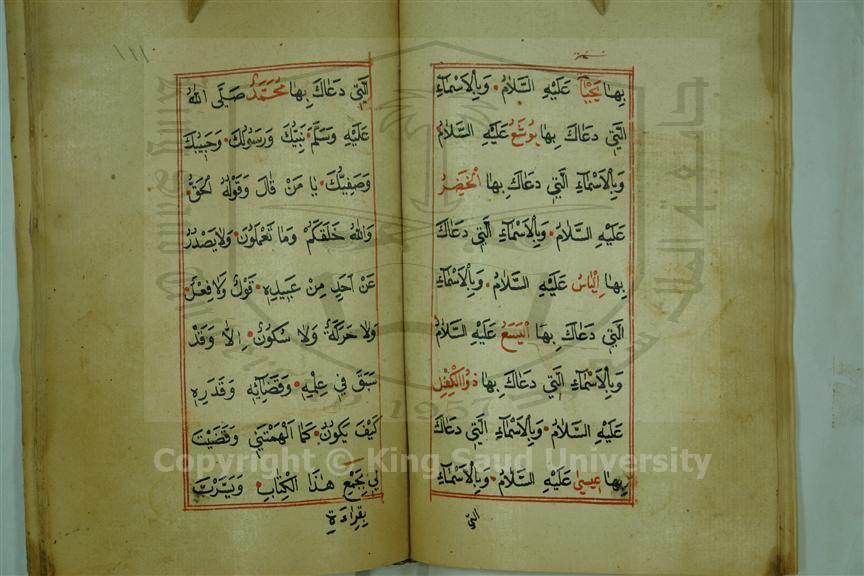 بِهَا يَحْيَا عَلَيْهِ السَّلَامُ وَبِالْاَسْمَآءِ
الَّتِي دَعَاكَ بِهَا يُوشَعُ عَلَيْهِ السَّلَامُ
وَبِالْاَسْمَآءِ الَّتِي دَعَاكَ بِهَا الْخَضِرُ
عَلَيْهِ السَّلَامُ وَبِالْاَسْمَآءِ الَّتِي دَعَاكَ
بِهَا اِلْيَاسُ عَلَيْهِ السَّلَامُ وَبِالْاَسْمَآءِ
الَّتِي دَعَاكَ بِهَا الْيَسَعُ عَلَيْهِ السَّلَامُ
وَبِالْاَسْمَآءِ الَّتِي دَعَاكَ بِهَا ذُو الْكِفْلِ
عَلَيْهِ السَّلَامُ وَبِالْاَسْمَآءِ الَّتِي دَعَاكَ
بِهَا عِيسَى عَلَيْهِ السَّلَامُ وَبِالْاَسْمَآءِ
الَّتِي
١١١
الَّتِي دَعَاكَ بِهَا مُحَمَّدٌ صَلَّى اللهُ
عَلَيْهِ وَسَلَّمَ نَبِيُّكَ وَرَسُولُكَ وَحَبِيبُكَ
وَصَفِيُّكَ يَا مَنْ قَالَ وَقَوْلُهُ الْحَقُّ
وَاللهُ خَلَقَكُمْ وَمَا تَعْمَلُونَ وَلَا يَصْدُرُ
عَنْ اَحَدٍ مِنْ عَبِيدِهِ قَوْلٌ وَلَا فِعْلٌ
وَلَا حَرَكَةٌ وَلَا سُكُونٌ اِلَّا وَقَدْ
سَبَقَ فِي عِلْمِهِ وَقَضَآئِهِ وَقَدَرِهِ
كَيْفَ يَكُونُ كَمَا اَلْهَمْتَنِي وَقَضَيْتَ
لِي بِجَمْعِ هٰذَا الْكِتَابِ وَيَسَّرْتَ
بِقِرَاءَةِ
جامعة الملك سعود
1957
Copyright © King Saud University